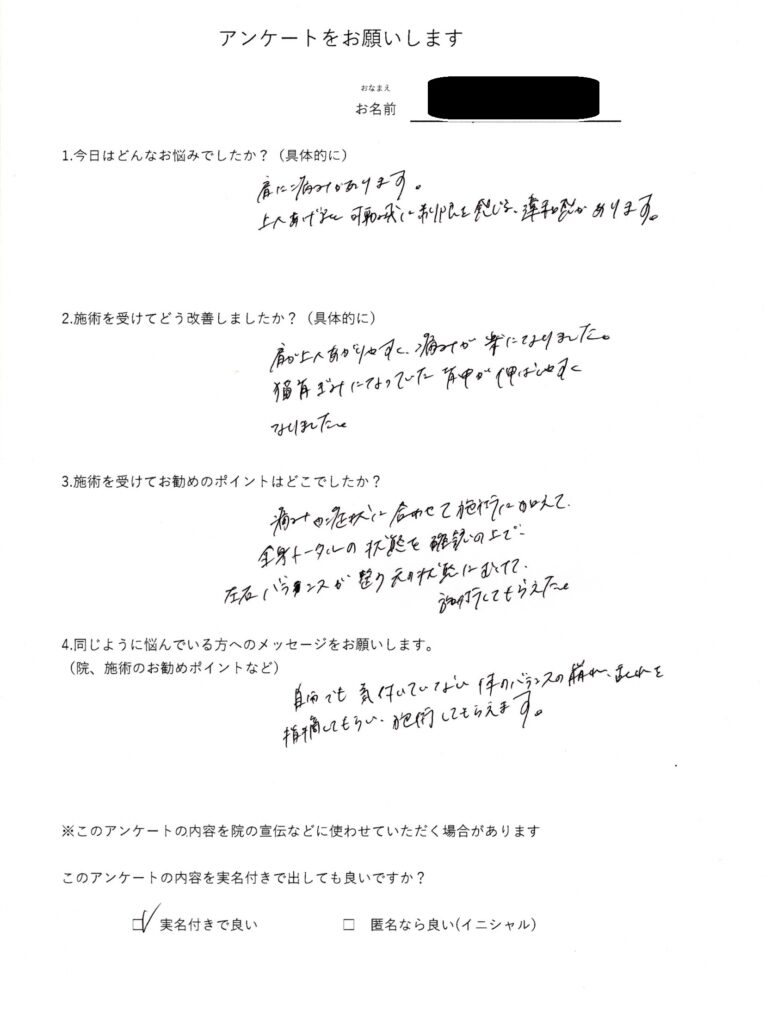 アンケートをお願いします
おなまえ
お名前
1.今日はどんなお悩みでしたか？（具体的に）
肩に痛みがあります。
上へあげると可動域に制限を感じる、違和感があります。
2.施術を受けてどう改善しましたか？（具体的に）
肩が上へあがりやすく、痛みが楽になりました。
猫背ぎみになっていた背中が伸ばしやすく
なりました。
3.施術を受けてお勧めのポイントはどこでしたか？
痛みや症状に合わせて施術に加えて、
全身トータルの状態を確認の上で、
左右バランスが整う元の状態にむけて、
施術してもらえた。
4.同じように悩んでいる方へのメッセージをお願いします。
（院、施術のお勧めポイントなど）
自分でも気付いていない体のバランスの崩れ、まくれを
指摘してもらい、施術してもらえます。
※このアンケートの内容を院の宣伝などに使わせていただく場合があります
このアンケートの内容を実名付きで出しても良いですか？
☑ 実名付きで良い □ 匿名なら良い(イニシャル)